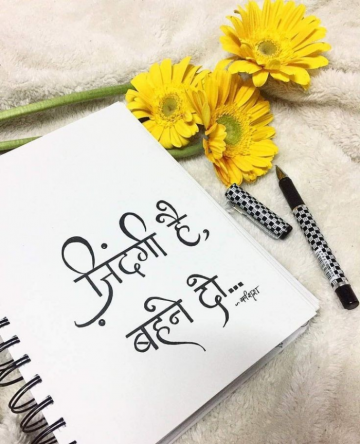 ज़िंदगी है,
बहने दो...